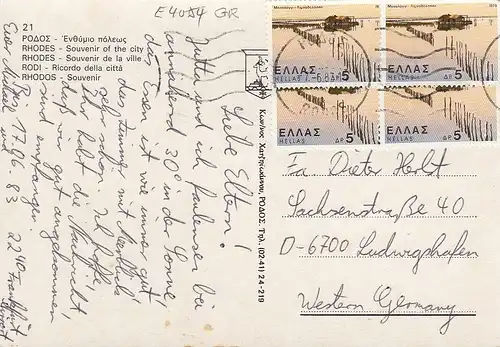 E4054 GR
21
ΡΟΔΟΣ - Ἐνθύμιο πόλεως
RHODES - Souvenir of the city
RHODES - Souvenir de la ville
RODI - Ricordo della città
RHODOS - Souvenir
Liebe Eltern!
Jutta und ich faulenzen bei
annähernd 30° in der Sonne,
das Essen ist wie immer gut,
das Zimmer mit Meerblick
sehr schön. Ich hoffe,
Ihr habt die Nachricht
daß wir gut angekommen
sind empfangen.
Bis 17.06.83 2240 Frankfurt
Euer Michael und
ΡΟΔΟΣ. Τηλ. (02-41) 24-219
ΕΛΛΑΣ
HELLAS
ΔΡ 5
ΕΛΛΑΣ
HELLAS
ΔΡ 5
ΕΛΛΑΣ
HELLAS
ΔΡ 5
ΕΛΛΑΣ
HELLAS
ΔΡ 5
Fa Dieter Herbst
Sachsenstraße 40
D-6700 Ludwigshafen
Western Germany